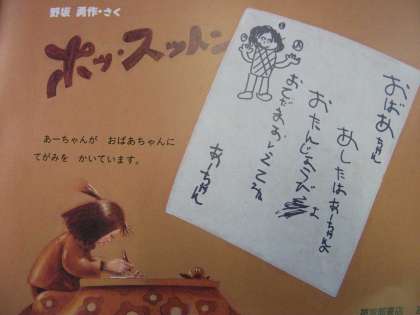 野坂 勇作・さく
ポッ・スットン
あーちゃんが おばあちゃんに
てがみを かいています。
おばあちゃん
あしたはあーちゃんの
おたんじょうび よ
あーちゃん
福音館書店